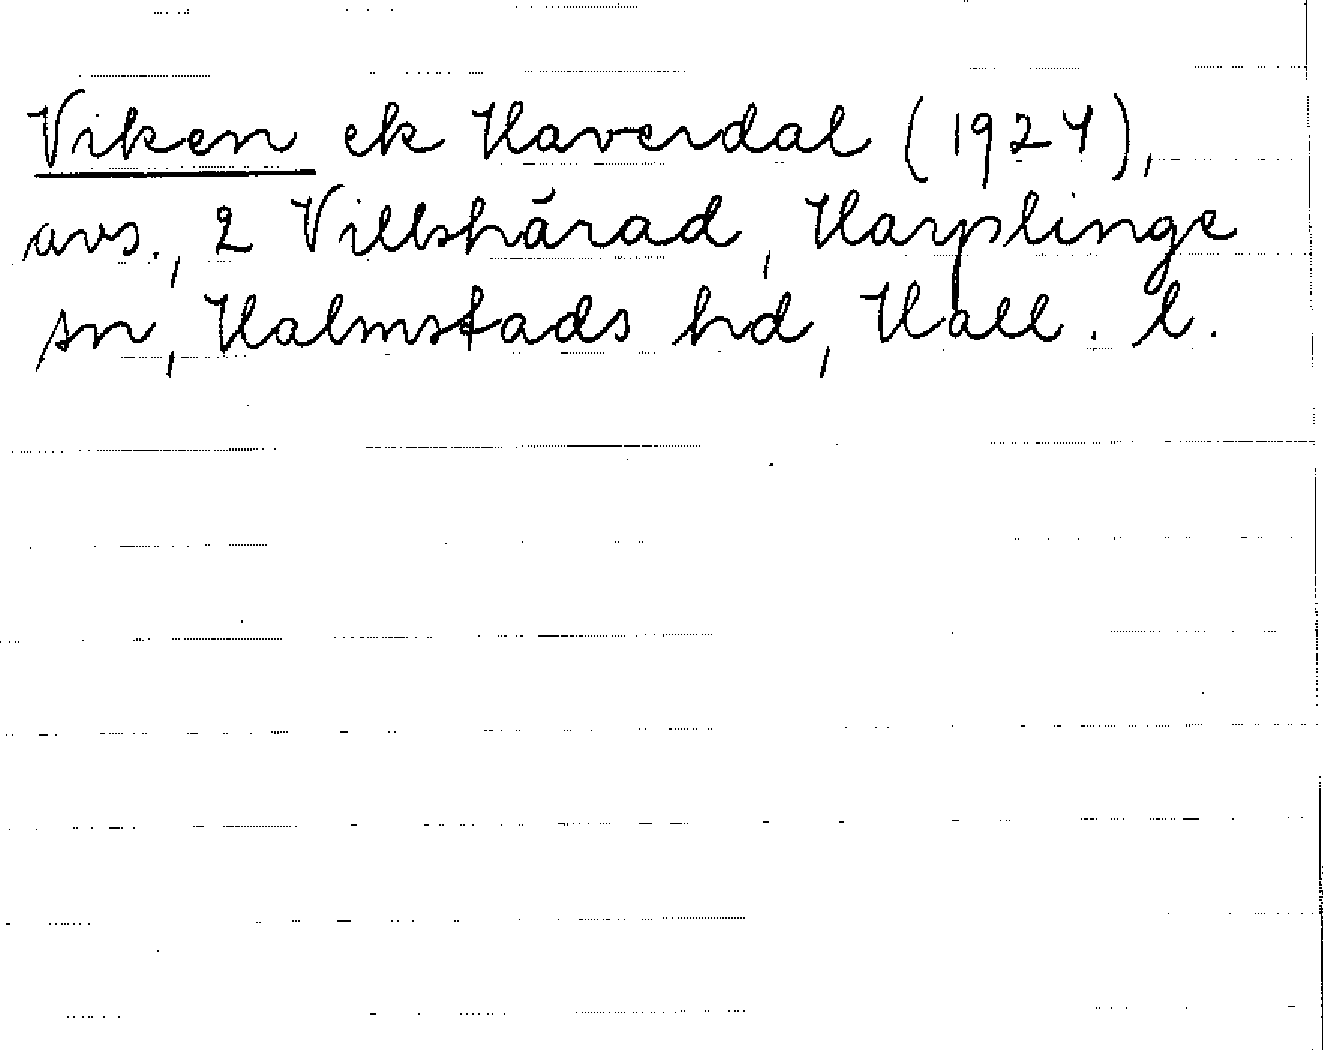 Viken ek Haverdal (1924),
avs., 2 Villshärad, Harplinge
sn, Halmstads hd, Hall. l.